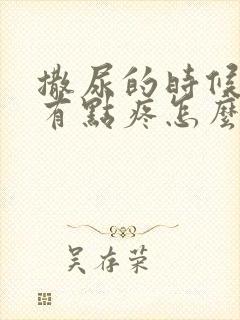 撒尿的時候
有點疼怎麼
吴存荣